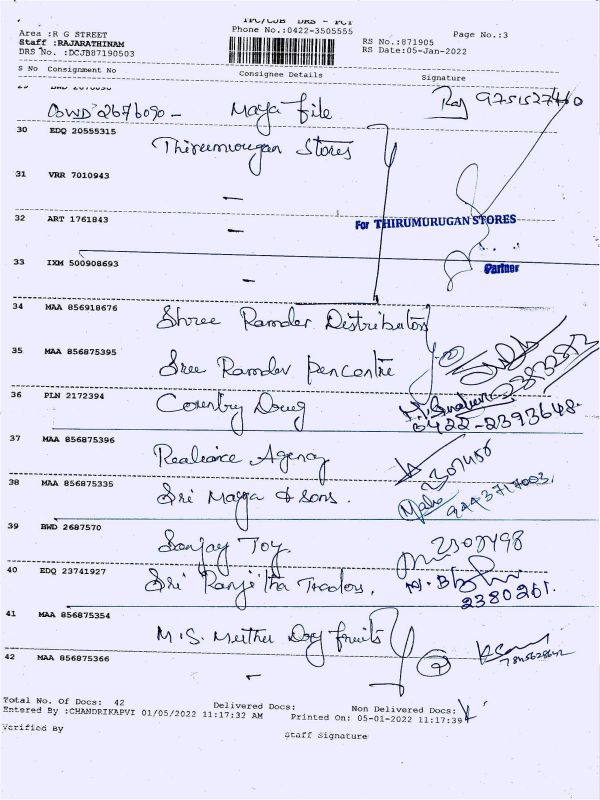 TPC/CJB DRS - PCT
Area :R G STREET
Phone No.:0422-3505555
Page No.:3
Staff :RAJARATHINAM
RS No.:871905
DRS No. :DCJB87190503
RS Date:05-Jan-2022
S No Consignment No Consignee Details Signature
29
BWD 2676090 - Maya file Raj 9751527460
30 EDQ 20555315 Thirumurugan Stores
31 VRR 7010943 -
32 ART 1761843 -
For THIRUMURUGAN STORES
33 IXM 500908693 -
Partner
34 MAA 856918676 Shree Ramdev Distributors
35 MAA 856875395 Sree Ramdev Pencentre
36 PLN 2172394 Country Drug
0422-2393648.
37 MAA 856875396 Realiance Agency
38 MAA 856875335 Sri Maya & Sons.
39 BWD 2687570 Sanjay Toy.
40 EDQ 23741927 Sri Ranjitha Traders.
2380261.
41 MAA 856875354 M.S. Muthu Dry fruits
42 MAA 856875366 -
Total No. Of Docs: 42 Delivered Docs: Non Delivered Docs:
Entered By :CHANDRIKAPVI 01/05/2022 11:17:32 AM Printed On: 05-01-2022 11:17:39
Verified By Staff Signature